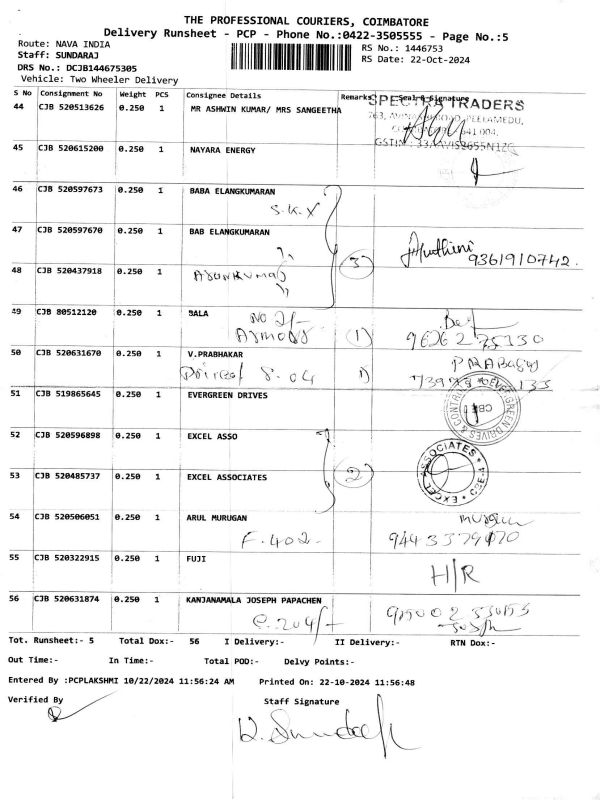 THE PROFESSIONAL COURIERS, COIMBATORE
Delivery Runsheet - PCP - Phone No.:0422-3505555 - Page No.:5
Route: NAVA INDIA
RS No.: 1446753
Staff: SUNDARAJ
RS Date: 22-Oct-2024
DRS No.: DCJB144675305
Vehicle: Two Wheeler Delivery
S No Consignment No Weight PCS Consignee Details Remarks Seal & Signature
44 CJB 520513626 0.250 1 MR ASHWIN KUMAR/ MRS SANGEETHA
SPECTRA TRADERS
PEELAMEDU,
641 004.
45 CJB 520615200 0.250 1 NAYARA ENERGY
46 CJB 520597673 0.250 1 BABA ELANGKUMARAN
S.K.V
47 CJB 520597670 0.250 1 BAB ELANGKUMARAN
9361910742.
48 CJB 520437918 0.250 1
3
49 CJB 80512120 0.250 1 BALA
1
50 CJB 520631670 0.250 1 V.PRABHAKAR
51 CJB 519865645 0.250 1 EVERGREEN DRIVES
EVERGREEN DRIVES & CONTR
CBE
52 CJB 520596898 0.250 1 EXCEL ASSO
53 CJB 520485737 0.250 1 EXCEL ASSOCIATES
2
EXCEL ASSOCIATES
54 CJB 520506051 0.250 1 ARUL MURUGAN
F.402.
55 CJB 520322915 0.250 1 FUJI
H/R
56 CJB 520631874 0.250 1 KANJANAMALA JOSEPH PAPACHEN
Tot. Runsheet:- 5 Total Dox:- 56 I Delivery:- II Delivery:- RTN Dox:-
Out Time:- In Time:- Total POD:- Delvy Points:-
Entered By :PCPLAKSHMI 10/22/2024 11:56:24 AM Printed On: 22-10-2024 11:56:48
Verified By
Staff Signature